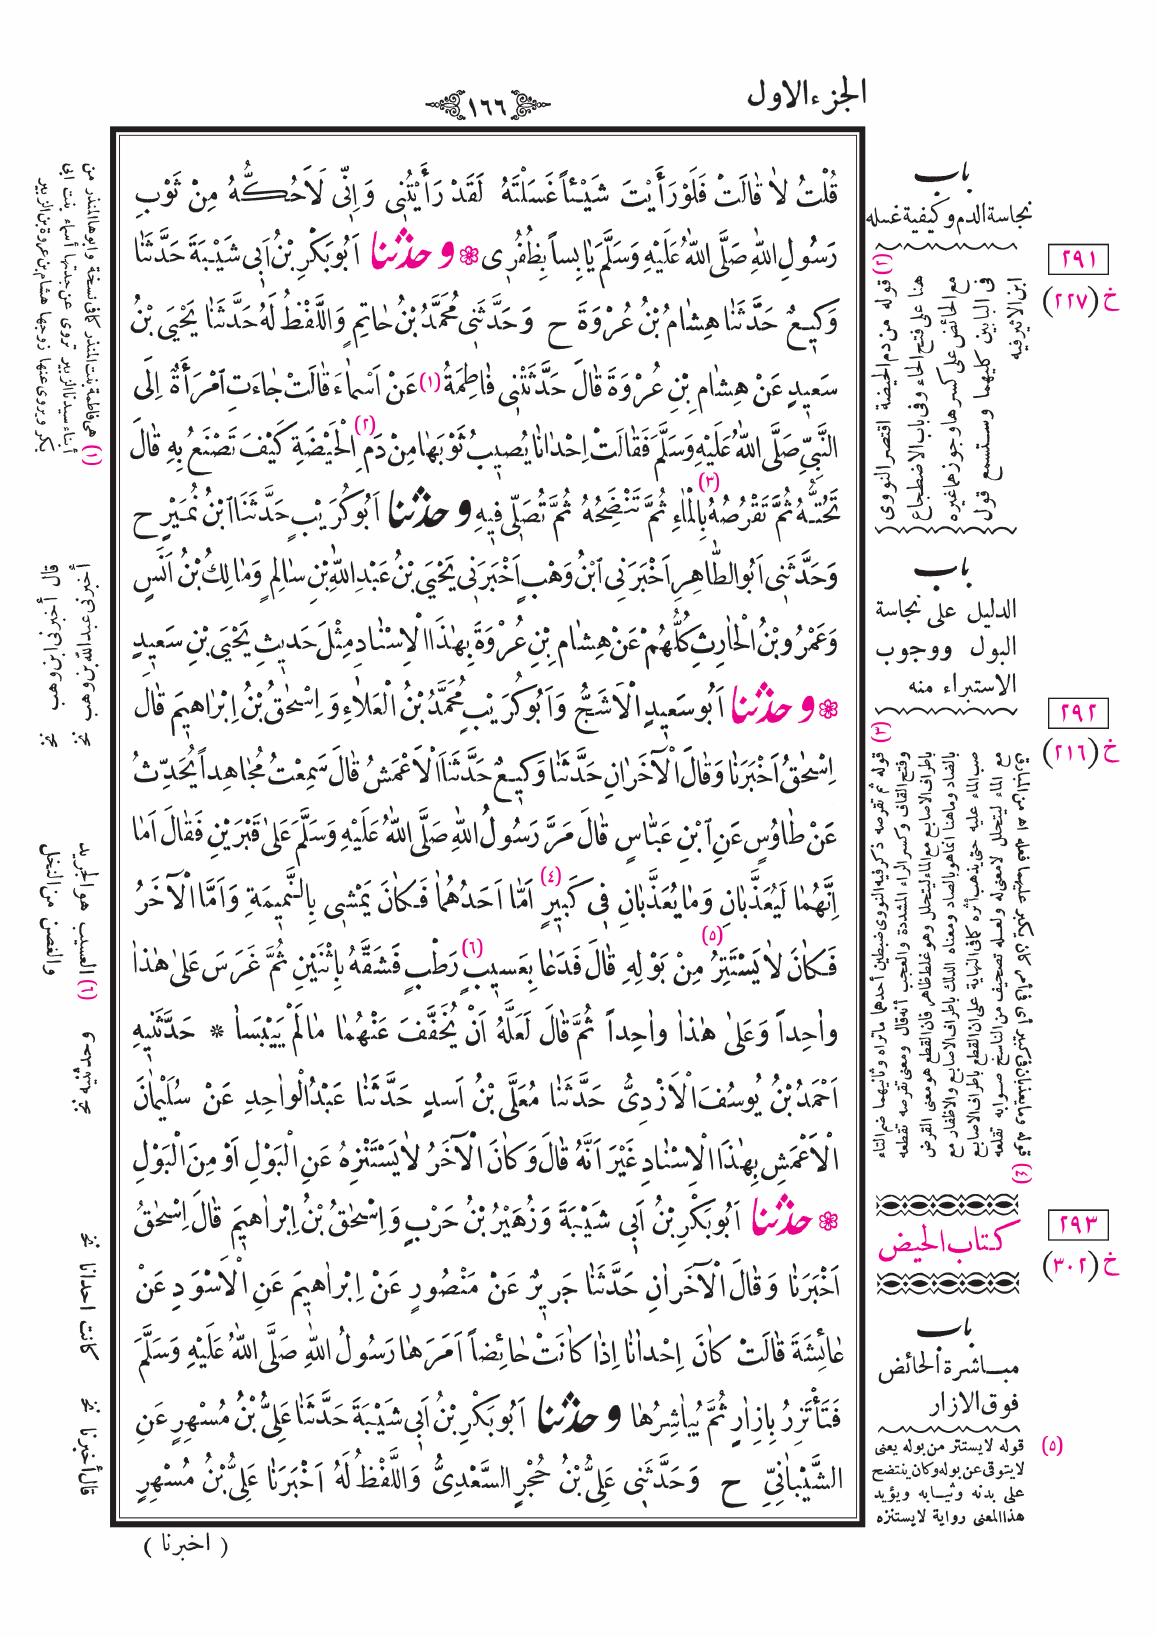 الجزء الاول
١٦٦
قُلْتُ لَا قَالَتْ فَلَوْ رَأَيْتَ شَيْئاً غَسَلْتَهُ لَقَدْ رَأَيْتُنِي وَاِنِّي لَاَحُكُّهُ مِنْ ثَوْبِ
رَسُولِ اللهِ صَلَّى اللهُ عَلَيْهِ وَسَلَّمَ يَابِساً بِظُفُرِي ❁ وحدثنا اَبُوبَكْرِ بْنُ اَبِي شَيْبَةَ حَدَّثَنَا
وَكِيعٌ حَدَّثَنَا هِشَامُ بْنُ عُرْوَةَ ح وَحَدَّثَنِي مُحَمَّدُ بْنُ حَاتِمٍ وَاللَّفْظُ لَهُ حَدَّثَنَا يَحْيَى بْنُ
سَعِيدٍ عَنْ هِشَامِ بْنِ عُرْوَةَ قَالَ حَدَّثَتْنِي فَاطِمَةُ (١) عَنْ اَسْمَاءَ قَالَتْ جَاءَتِ امْرَأَةٌ اِلَى
النَّبِيِّ صَلَّى اللهُ عَلَيْهِ وَسَلَّمَ فَقَالَتْ اِحْدَانَا يُصِيبُ ثَوْبَهَا مِنْ دَمِ (٢) الْحَيْضَةِ كَيْفَ تَصْنَعُ بِهِ قَالَ
تَحُتُّهُ ثُمَّ تَقْرُصُهُ (٣) بِالْمَاءِ ثُمَّ تَنْضِحُهُ ثُمَّ تُصَلِّي فِيهِ وحدثنا اَبُو كُرَيْبٍ حَدَّثَنَا ابْنُ نُمَيْرٍ ح
وَحَدَّثَنِي اَبُو الطَّاهِرِ اَخْبَرَنِي ابْنُ وَهْبٍ اَخْبَرَنِي يَحْيَى بْنُ عَبْدِ اللهِ بْنِ سَالِمٍ وَمَالِكُ بْنُ اَنَسٍ
وَعَمْرُو بْنُ الْحَارِثِ كُلُّهُمْ عَنْ هِشَامِ بْنِ عُرْوَةَ بِهٰذَا الْاِسْنَادِ مِثْلَ حَدِيثِ يَحْيَى بْنِ سَعِيدٍ
❁ وحدثنا اَبُو سَعِيدٍ الْاَشَجُّ وَاَبُو كُرَيْبٍ مُحَمَّدُ بْنُ الْعَلَاءِ وَاِسْحٰقُ بْنُ اِبْرَاهِيمَ قَالَ
اِسْحٰقُ اَخْبَرَنَا وَقَالَ الْآخَرَانِ حَدَّثَنَا وَكِيعٌ حَدَّثَنَا الْاَعْمَشُ قَالَ سَمِعْتُ مُجَاهِداً يُحَدِّثُ
عَنْ طَاوُسٍ عَنِ ابْنِ عَبَّاسٍ قَالَ مَرَّ رَسُولُ اللهِ صَلَّى اللهُ عَلَيْهِ وَسَلَّمَ عَلَى قَبْرَيْنِ فَقَالَ اَمَا
اِنَّهُمَا لَيُعَذَّبَانِ وَمَا يُعَذَّبَانِ فِي كَبِيرٍ (٤) اَمَّا اَحَدُهُمَا فَكَانَ يَمْشِي بِالنَّمِيمَةِ وَاَمَّا الْآخَرُ
فَكَانَ لَا يَسْتَتِرُ (٥) مِنْ بَوْلِهِ قَالَ فَدَعَا بِعَسِيبٍ (٦) رَطْبٍ فَشَقَّهُ بِاثْنَيْنِ ثُمَّ غَرَسَ عَلَى هٰذَا
وَاحِداً وَعَلَى هٰذَا وَاحِداً ثُمَّ قَالَ لَعَلَّهُ اَنْ يُخَفَّفَ عَنْهُمَا مَا لَمْ يَيْبَسَا * حَدَّثَنِيهِ
اَحْمَدُ بْنُ يُوسُفَ الْاَزْدِيُّ حَدَّثَنَا مُعَلَّى بْنُ اَسَدٍ حَدَّثَنَا عَبْدُ الْوَاحِدِ عَنْ سُلَيْمَانَ
الْاَعْمَشِ بِهٰذَا الْاِسْنَادِ غَيْرَ اَنَّهُ قَالَ وَكَانَ الْآخَرُ لَا يَسْتَنْزِهُ عَنِ الْبَوْلِ اَوْ مِنَ الْبَوْلِ
❁ حدثنا اَبُوبَكْرِ بْنُ اَبِي شَيْبَةَ وَزُهَيْرُ بْنُ حَرْبٍ وَاِسْحٰقُ بْنُ اِبْرَاهِيمَ قَالَ اِسْحٰقُ
اَخْبَرَنَا وَقَالَ الْآخَرَانِ حَدَّثَنَا جَرِيرٌ عَنْ مَنْصُورٍ عَنْ اِبْرَاهِيمَ عَنِ الْاَسْوَدِ عَنْ
عَائِشَةَ قَالَتْ كَانَ اِحْدَانَا اِذَا كَانَتْ حَائِضاً اَمَرَهَا رَسُولُ اللهِ صَلَّى اللهُ عَلَيْهِ وَسَلَّمَ
فَتَأْتَزِرُ بِاِزَارٍ ثُمَّ يُبَاشِرُهَا وحدثنا اَبُوبَكْرِ بْنُ اَبِي شَيْبَةَ حَدَّثَنَا عَلِيُّ بْنُ مُسْهِرٍ عَنِ
الشَّيْبَانِيِّ ح وَحَدَّثَنِي عَلِيُّ بْنُ حُجْرٍ السَّعْدِيُّ وَاللَّفْظُ لَهُ اَخْبَرَنَا عَلِيُّ بْنُ مُسْهِرٍ
( اخبرنا )
باب
نجاسة الدم وكيفية غسله
٢٩١
خ (٢٢٧)
(٢) قوله من دم الحيضة اقتصر النووى
هنا على فتح الحاء وفى باب الاضطجاع
مع الحائض على كسرها وجوزهما غيره
فى البابين كليهما وستسمع قول
ابن الاثير فيه
باب
الدليل على نجاسة
البول ووجوب
الاستبراء منه
٢٩٢
خ (٢١٦)
(٣) قوله ثم تقرصه ذكر فيه النووى ضبطين أحدهما ماتراه وثانيهما ضم التاء
وفتح القاف وكسر الراء المشددة والعجب أنه قال ومعنى تقرصه تقطعه
باطراف الاصابع مع الماء ليتحلل وهو غلط ظاهر فان القطع هو معنى القرض
بالضاد وماهنا انما هو بالصاد ومعناه الدلك باطراف الاصابع والاظفار مع
صب الماء عليه حتى يذهب أثره كما فى النهاية على ان القطع باطراف الاصابع
مع الماء ليتحلل لا معنى له ولعله تصحيف من الناسخ صوابه تقلعه
(٤) قوله وما يعذبان فى كبير أى
كتاب الحيض
٢٩٣
خ (٣٠٢)
باب
مباشرة الحائض
فوق الازار
(٥) قوله لا يستتر من بوله يعنى
لا يتوقى عن بوله وكان ينتضح
على بدنه وثيابه ويؤيد
هذا المعنى رواية لا يستنزه
(١) هى فاطمة بنت المنذر كما فى نسخة وابوها المنذر من
أبناء سيدنا الزبير تروى عن جدتها أسماء بنت ابى
بكر ويروى عنها زوجها هشام بن عروة بن الزبير
أخبرنى عبدالله بن وهب نخ
قال أخبرنى ابن وهب نخ
(٦) العسيب هو الجريد
والغصن من النخل
وحدثنيه نخ
كانت احدانا نخ
قال أخبرنا نخ